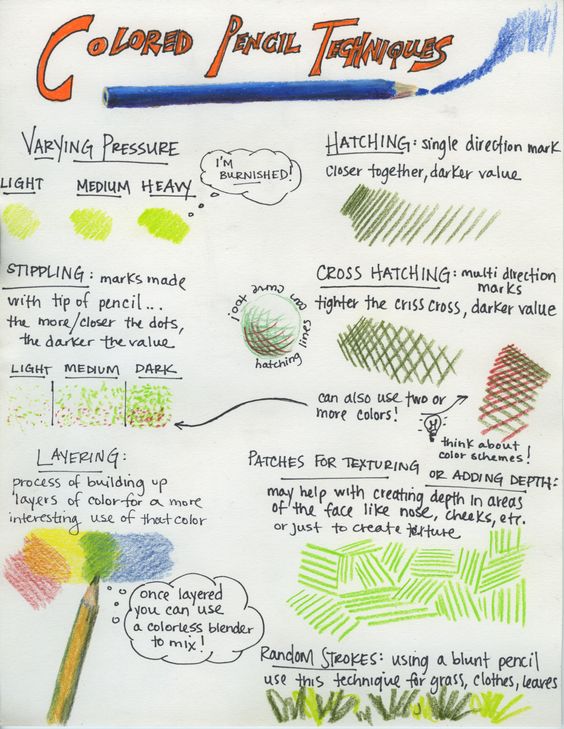 COLORED PENCIL TECHNIQUES
VARYING PRESSURE
LIGHT MEDIUM HEAVY
I'M
BURNISHED!
HATCHING: single direction mark
closer together, darker value
STIPPLING: marks made
with tip of pencil...
the more/closer the dots,
the darker the value
LIGHT MEDIUM DARK
foot can curve
hatching lines
CROSS HATCHING: multi direction
marks
tighter the criss cross, darker value
can also use two or
more colors!
think about
color schemes!
LAYERING:
process of building up
layers of color for a more
interesting use of that color
once layered
you can use
a colorless blender
to mix!
PATCHES FOR TEXTURING OR ADDING DEPTH:
may help with creating depth in areas
of the face like nose, cheeks, etc.
or just to create texture
RANDOM STROKES: using a blunt pencil
use this technique for grass, clothes, leaves